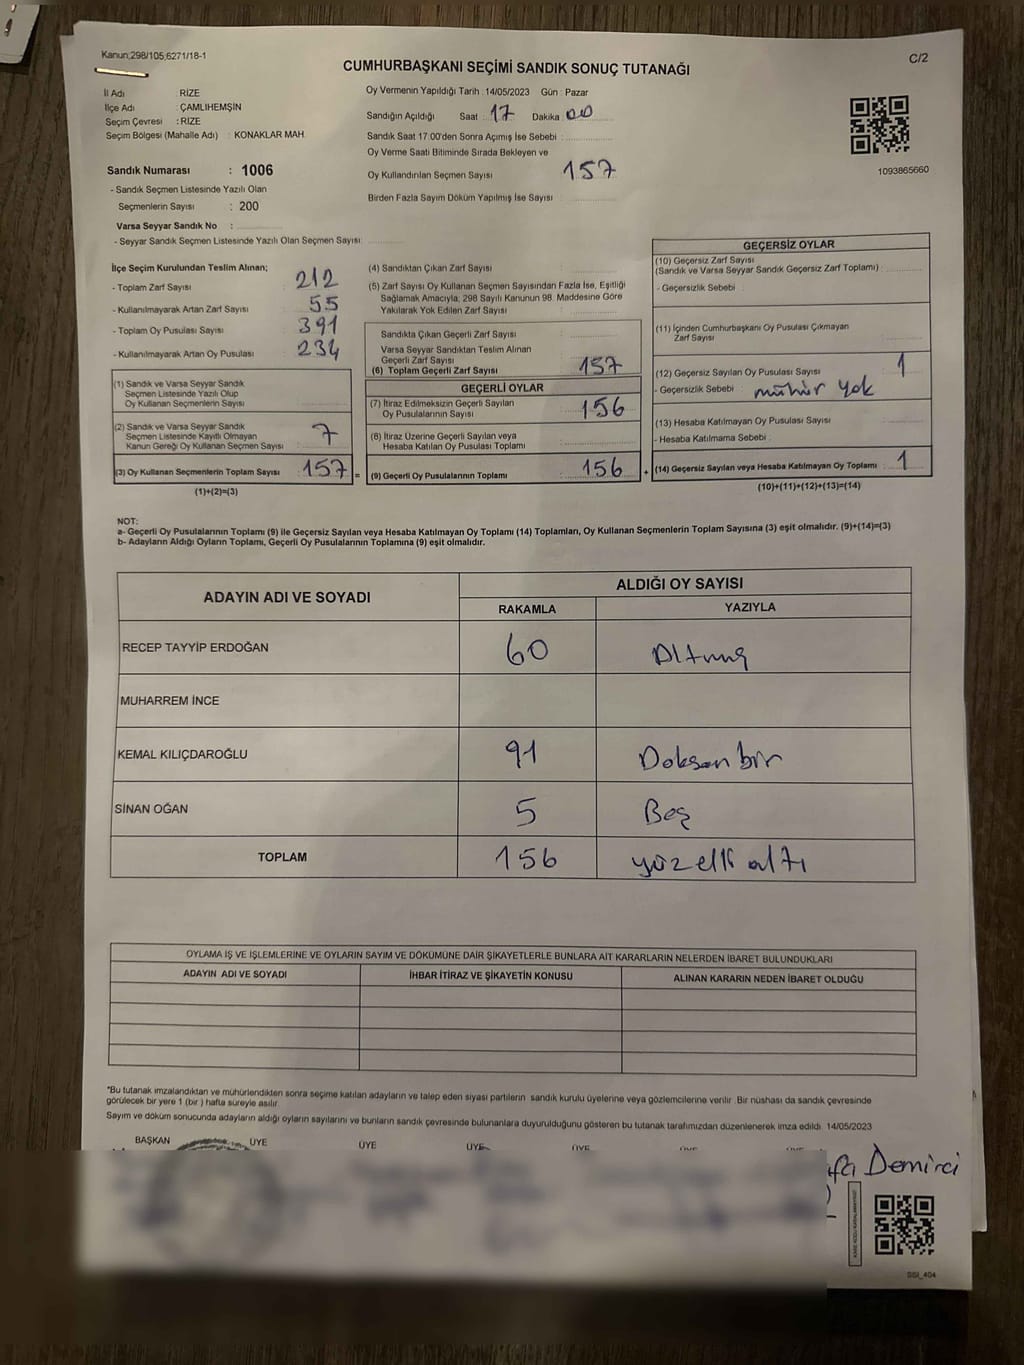 Kanun;298/105;6271/18-1
C/2
CUMHURBAŞKANI SEÇİMİ SANDIK SONUÇ TUTANAĞI
İl Adı : RİZE
İlçe Adı : ÇAMLIHEMŞİN
Seçim Çevresi : RİZE
Seçim Bölgesi (Mahalle Adı) : KONAKLAR MAH.
Oy Vermenin Yapıldığı Tarih : 14/05/2023 Gün : Pazar
Sandığın Açıldığı Saat 17 Dakika 00
Sandık Saat 17:00'den Sonra Açımış İse Sebebi :
Oy Verme Saati Bitiminde Sırada Bekleyen ve
Oy Kullandırılan Seçmen Sayısı 157
Birden Fazla Sayım Döküm Yapılmış İse Sayısı :
1093865660
Sandık Numarası : 1006
- Sandık Seçmen Listesinde Yazılı Olan
Seçmenlerin Sayısı : 200
Varsa Seyyar Sandık No :
- Seyyar Sandık Seçmen Listesinde Yazılı Olan Seçmen Sayısı:
İlçe Seçim Kurulundan Teslim Alınan;
- Toplam Zarf Sayısı : 212
- Kullanılmayarak Artan Zarf Sayısı : 55
- Toplam Oy Pusulası Sayısı : 391
- Kullanılmayarak Artan Oy Pusulası : 234
(1) Sandık ve Varsa Seyyar Sandık
Seçmen Listesinde Yazılı Olup
Oy Kullanan Seçmenlerin Sayısı :
(2) Sandık ve Varsa Seyyar Sandık
Seçmen Listesinde Kayıtlı Olmayan
Kanun Gereği Oy Kullanan Seçmen Sayısı : 7
(3) Oy Kullanan Seçmenlerin Toplam Sayısı : 157 =
(1)+(2)=(3)
(4) Sandıktan Çıkan Zarf Sayısı :
(5) Zarf Sayısı Oy Kullanan Seçmen Sayısından Fazla İse, Eşitliği
Sağlamak Amacıyla; 298 Sayılı Kanunun 98. Maddesine Göre
Yakılarak Yok Edilen Zarf Sayısı :
Sandıkta Çıkan Geçerli Zarf Sayısı :
Varsa Seyyar Sandıktan Teslim Alınan
Geçerli Zarf Sayısı :
(6) Toplam Geçerli Zarf Sayısı : 157
GEÇERLİ OYLAR
(7) İtiraz Edilmeksizin Geçerli Sayılan
Oy Pusulalarının Sayısı : 156
(8) İtiraz Üzerine Geçerli Sayılan veya
Hesaba Katılan Oy Pusulası Toplamı :
(9) Geçerli Oy Pusulalarının Toplamı : 156 +
GEÇERSİZ OYLAR
(10) Geçersiz Zarf Sayısı
(Sandık ve Varsa Seyyar Sandık Geçersiz Zarf Toplamı) :
- Geçersizlik Sebebi :
(11) İçinden Cumhurbaşkanı Oy Pusulası Çıkmayan
Zarf Sayısı :
(12) Geçersiz Sayılan Oy Pusulası Sayısı : 1
- Geçersizlik Sebebi : mühür yok
(13) Hesaba Katılmayan Oy Pusulası Sayısı :
- Hesaba Katılmama Sebebi :
(14) Geçersiz Sayılan veya Hesaba Katılmayan Oy Toplamı : 1
(10)+(11)+(12)+(13)=(14)
NOT:
a- Geçerli Oy Pusulalarının Toplamı (9) ile Geçersiz Sayılan veya Hesaba Katılmayan Oy Toplamı (14) Toplamları, Oy Kullanan Seçmenlerin Toplam Sayısına (3) eşit olmalıdır. (9)+(14)=(3)
b- Adayların Aldığı Oyların Toplamı, Geçerli Oy Pusulalarının Toplamına (9) eşit olmalıdır.
ADAYIN ADI VE SOYADI
ALDIĞI OY SAYISI
RAKAMLA YAZIYLA
RECEP TAYYİP ERDOĞAN 60 Altmış
MUHARREM İNCE
KEMAL KILIÇDAROĞLU 91 Doksan bir
SİNAN OĞAN 5 Beş
TOPLAM 156 yüzelli altı
OYLAMA İŞ VE İŞLEMLERİNE VE OYLARIN SAYIM VE DÖKÜMÜNE DAİR ŞİKAYETLERLE BUNLARA AİT KARARLARIN NELERDEN İBARET BULUNDUKLARI
ADAYIN ADI VE SOYADI İHBAR İTİRAZ VE ŞİKAYETİN KONUSU ALINAN KARARIN NEDEN İBARET OLDUĞU
*Bu tutanak imzalandıktan ve mühürlendikten sonra seçime katılan adayların ve talep eden siyasi partilerin sandık kurulu üyelerine veya gözlemcilerine verilir. Bir nüshası da sandık çevresinde
görülecek bir yere 1 (bir) hafta süreyle asılır.
Sayım ve döküm sonucunda adayların aldığı oyların sayılarını ve bunların sandık çevresinde bulunanlara duyurulduğunu gösteren bu tutanak tarafımızdan düzenlenerek imza edildi. 14/05/2023
BAŞKAN ÜYE ÜYE ÜYE ÜYE
Demirci
SSI_404